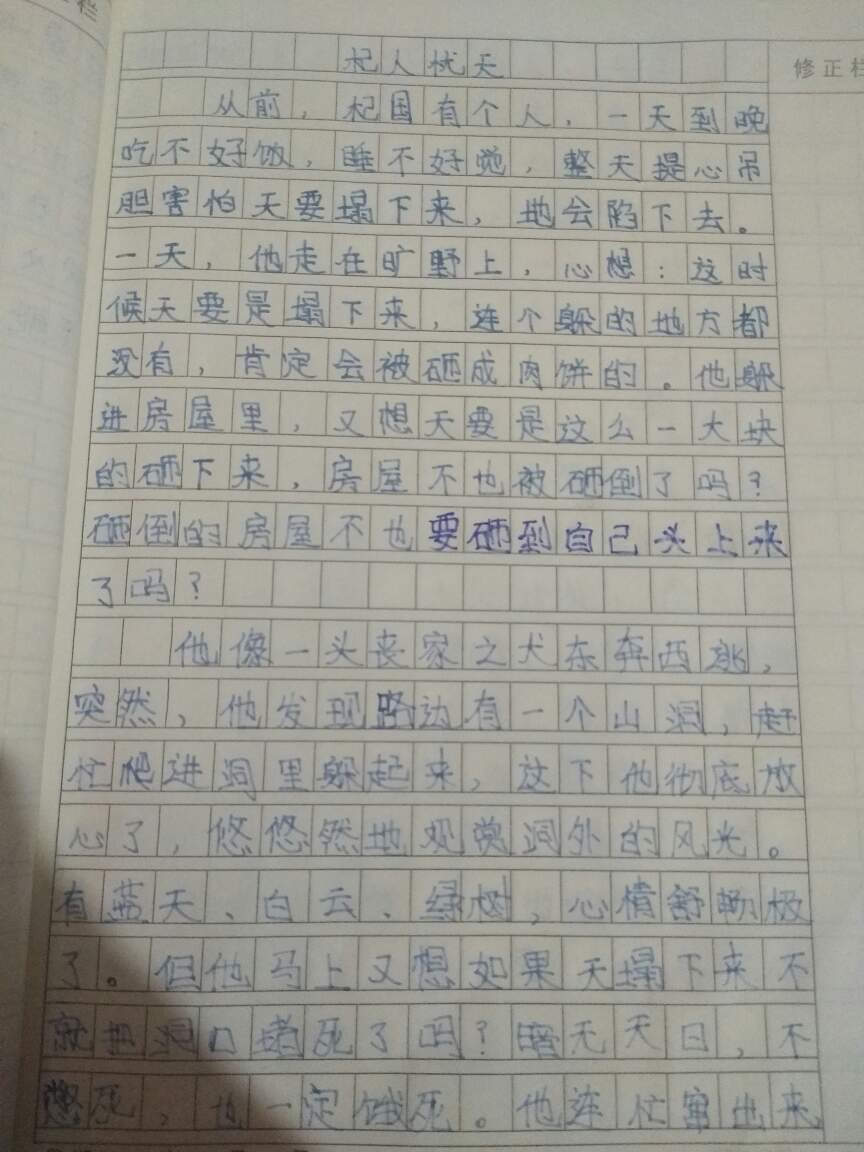 栏
修正栏
杞人忧天
从前，杞国有个人，一天到晚
吃不好饭，睡不好觉，整天提心吊
胆害怕天要塌下来，地会陷下去。
一天，他走在旷野上，心想：这时
候天要是塌下来，连个躲的地方都
没有，肯定会被砸成肉饼的。他躲
进房屋里，又想天要是这么一大块
的砸下来，房屋不也被砸倒了吗？
砸倒的房屋不也要砸到自己头上来
了吗？
他像一头丧家之犬东奔西逃，
突然，他发现路边有一个山洞，赶
忙爬进洞里躲起来，这下他彻底放
心了，悠悠然地观赏洞外的风光。
有蓝天、白云、绿树，心情舒畅极
了。但他马上又想如果天塌下来不
就把洞口堵死了吗？暗无天日，不
憋死，也一定饿死。他连忙窜出来